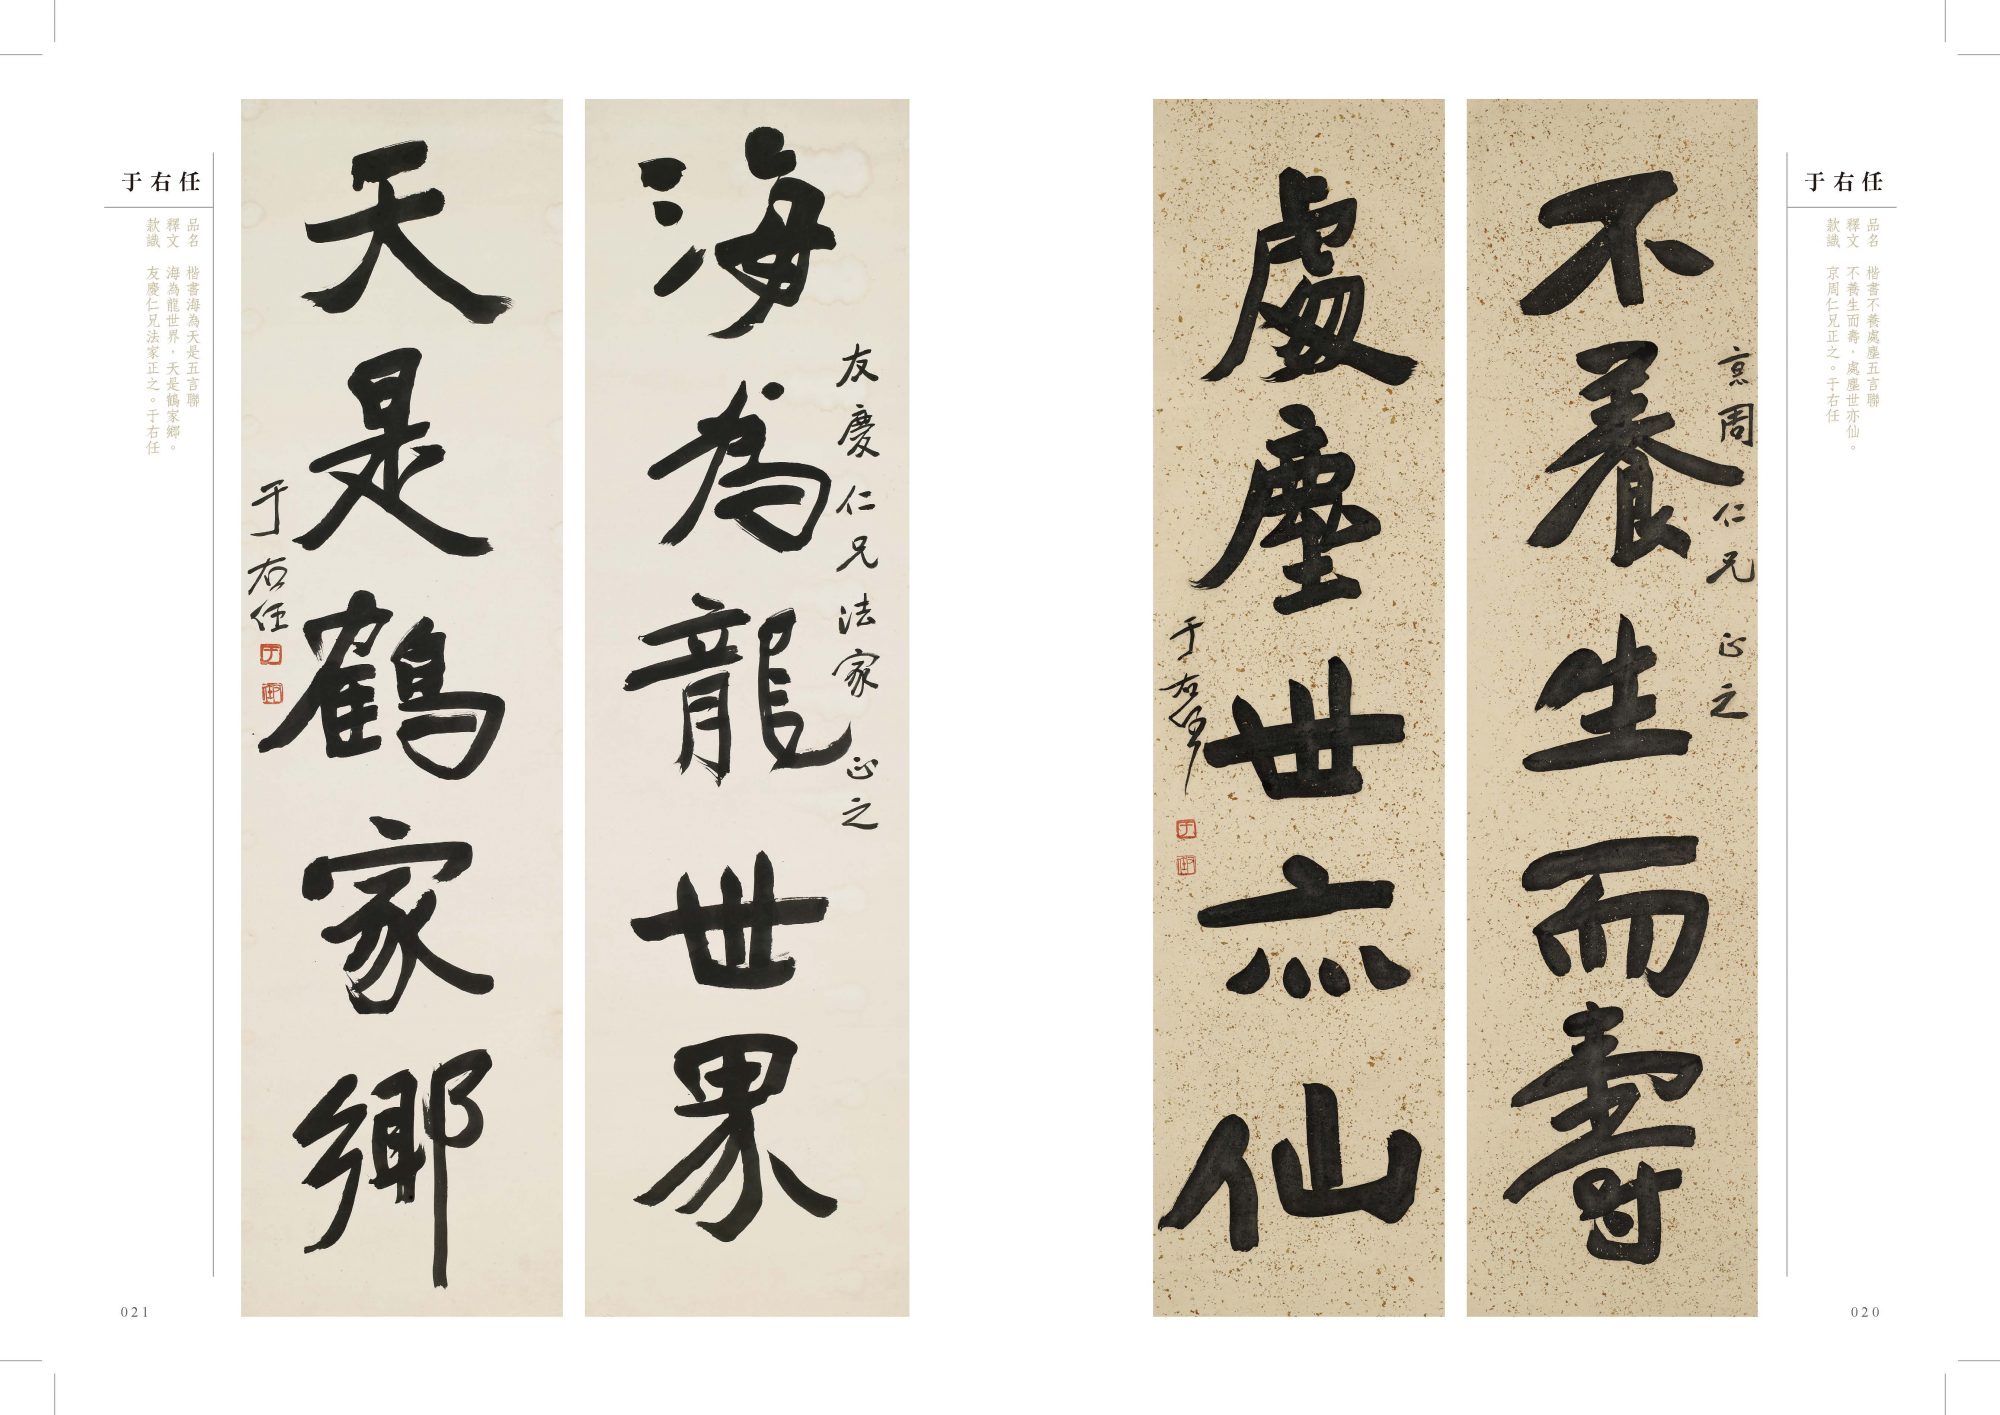 于右任
品名 楷書不養處塵五言聯
釋文 不養生而壽，處塵世亦仙。
款識 京周仁兄正之。于右任
京周仁兄正之
不養生而壽
處塵世亦仙
于右任
020
友慶仁兄法家正之
海為龍世界
天是鶴家鄉
于右任
于右任
品名 楷書海為天是五言聯
釋文 海為龍世界，天是鶴家鄉。
款識 友慶仁兄法家正之。于右任
021